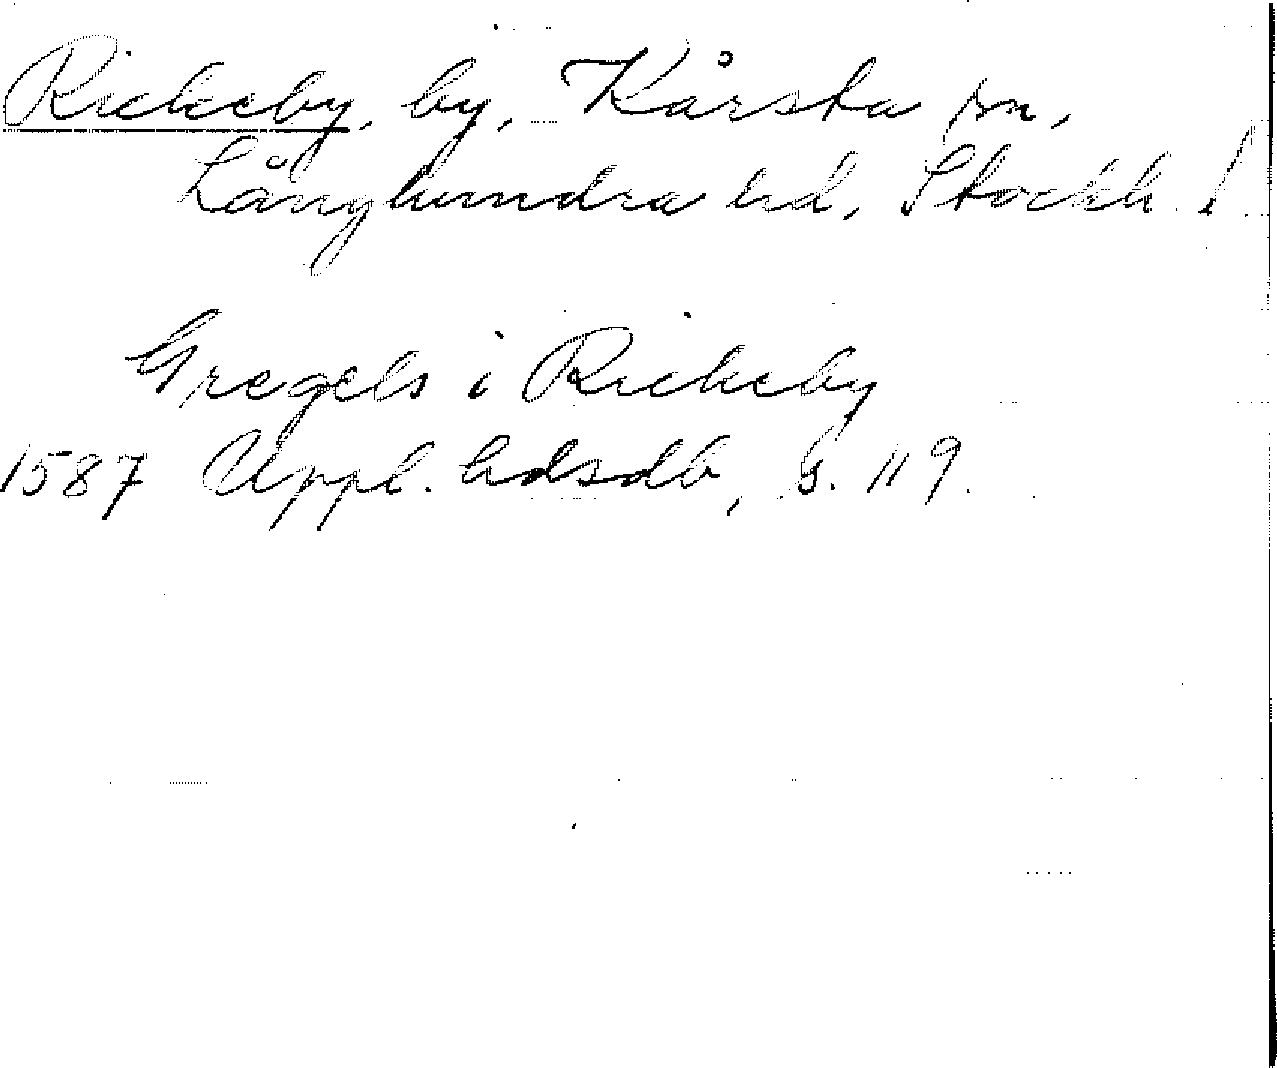 Rickeby, by, Kårsta sn,
Långhundra hd, Stockh. l.
Gregels i Rickeby
1587 Uppl. hdsdb, s. 119.